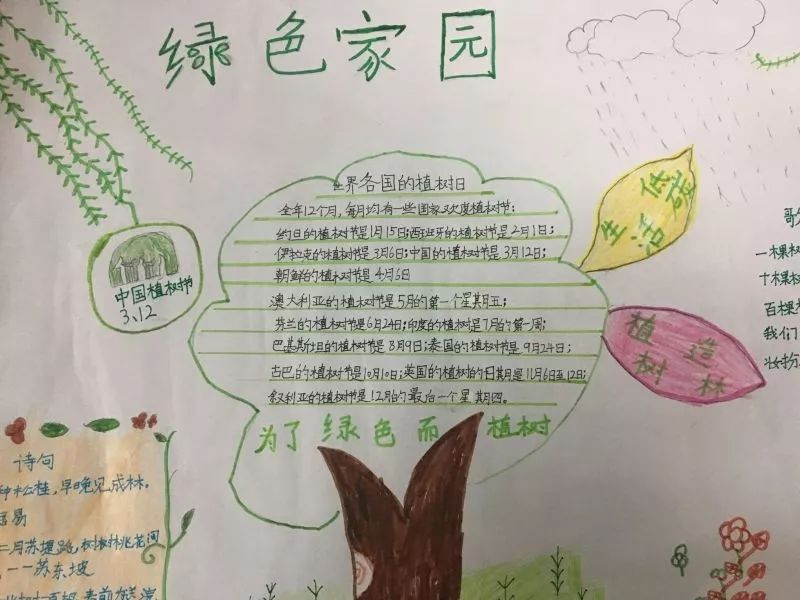 绿色家园
世界各国的植树日
全年12个月,每月均有一些国家欢度植树节:
约旦的植树节是1月15日;西班牙的植树节是2月1日;
伊拉克的植树节是3月6日;中国的植树节是3月12日;
朝鲜的植树节是4月6日
澳大利亚的植树节是5月的第一个星期五;
芬兰的植树节是6月24日;印度的植树是7月的第一周;
巴基斯坦的植树节是8月9日;泰国的植树节是9月24日;
古巴的植树节是10月10日;英国的植树的日期是11月6日至12日;
叙利亚的植树节是12月的最后一个星期四。
为了绿色而植树
中国植树节
3.12
低碳
生活
植造
树林
一棵树
十棵树
百棵
我们
妆扮
诗句
种松桂,早晚见成林。
居易
二月苏堤路,树树桃花间
一一苏东坡